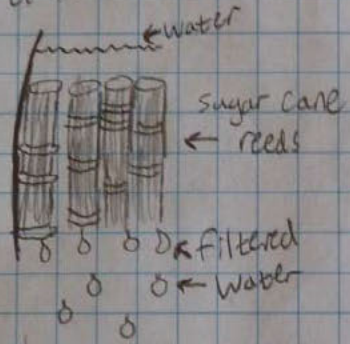 water
sugar cane
reeds
filtered
water